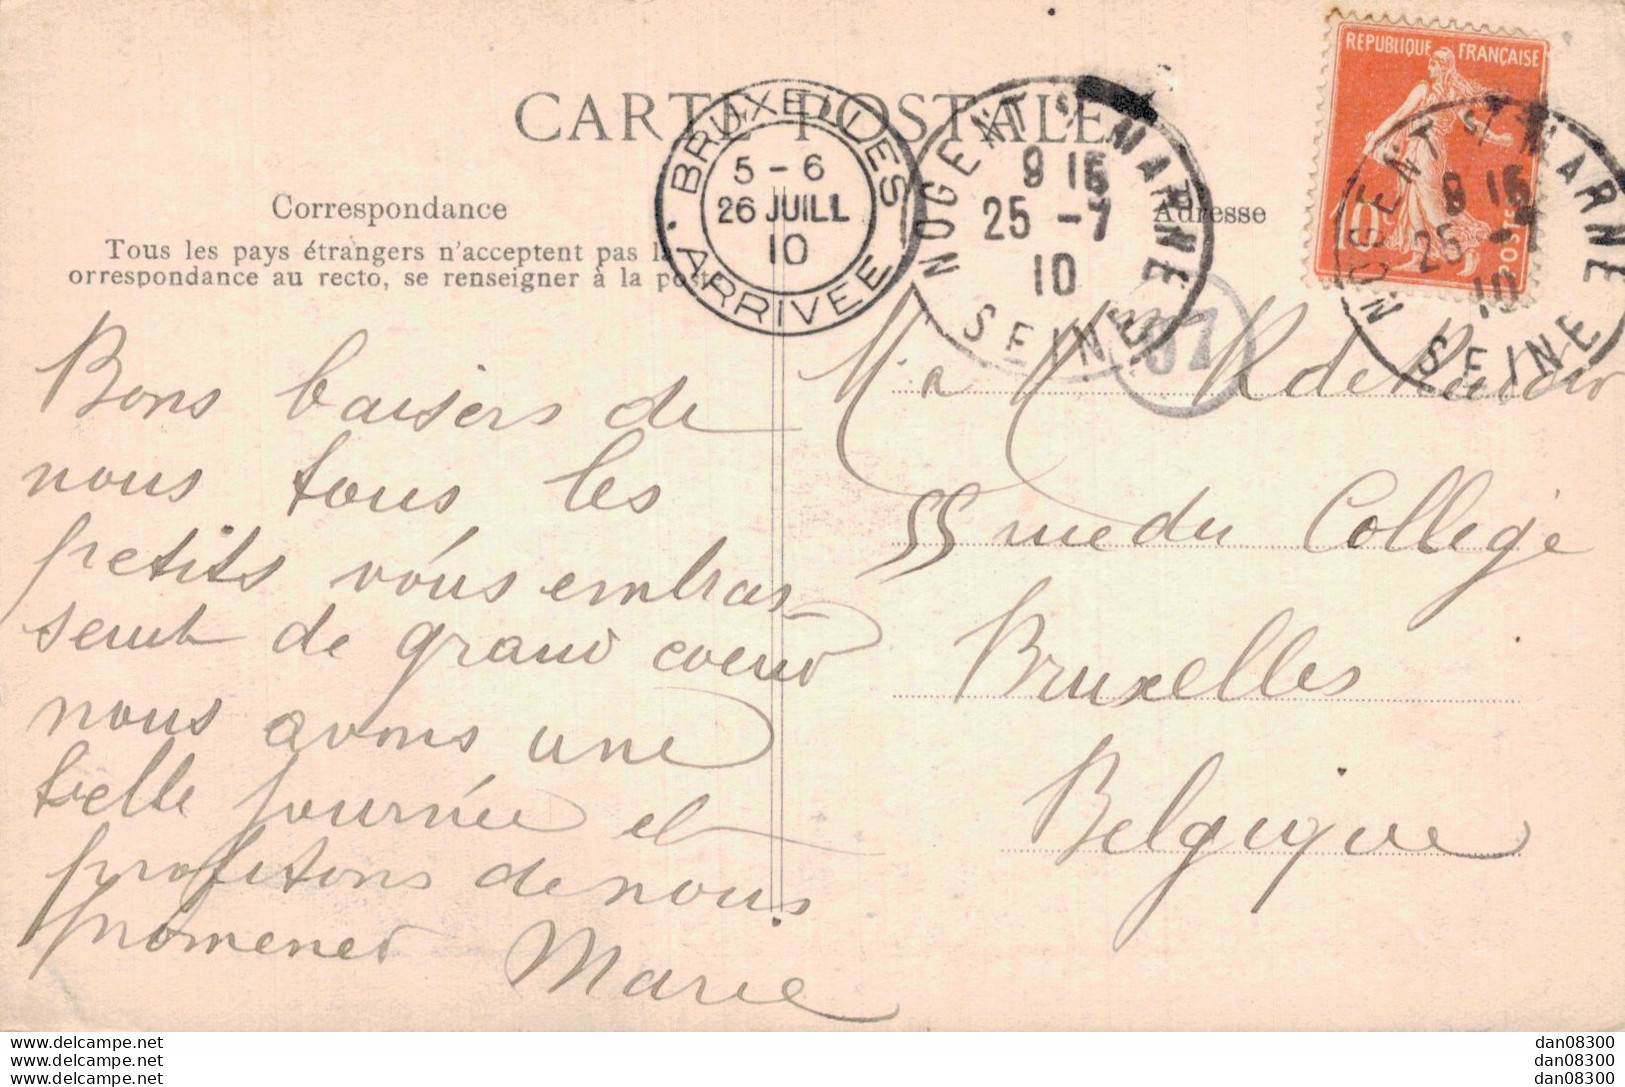 CARTE POSTALE
Correspondance
Tous les pays étrangers n'acceptent pas la
orrespondance au recto, se renseigner à la poste
Adresse
BRUXELLES
5 - 6
26 JUILL
10
ARRIVEE
NOGENT S/ MARNE
9 15
25 -7
10
SEINE
REPUBLIQUE FRANÇAISE
10
POSTES
NOGENT S/ MARNE
9 15
25 -7
10
SEINE
Bons baisers de
nous tous les
petits vous embras
sent de grand coeur
nous avons une
belle journée et
profitons de nous
promener Marie
55 rue du College
Bruxelles
Belgique
dan08300
dan08300
dan08300
dan08300
dan08300
dan08300